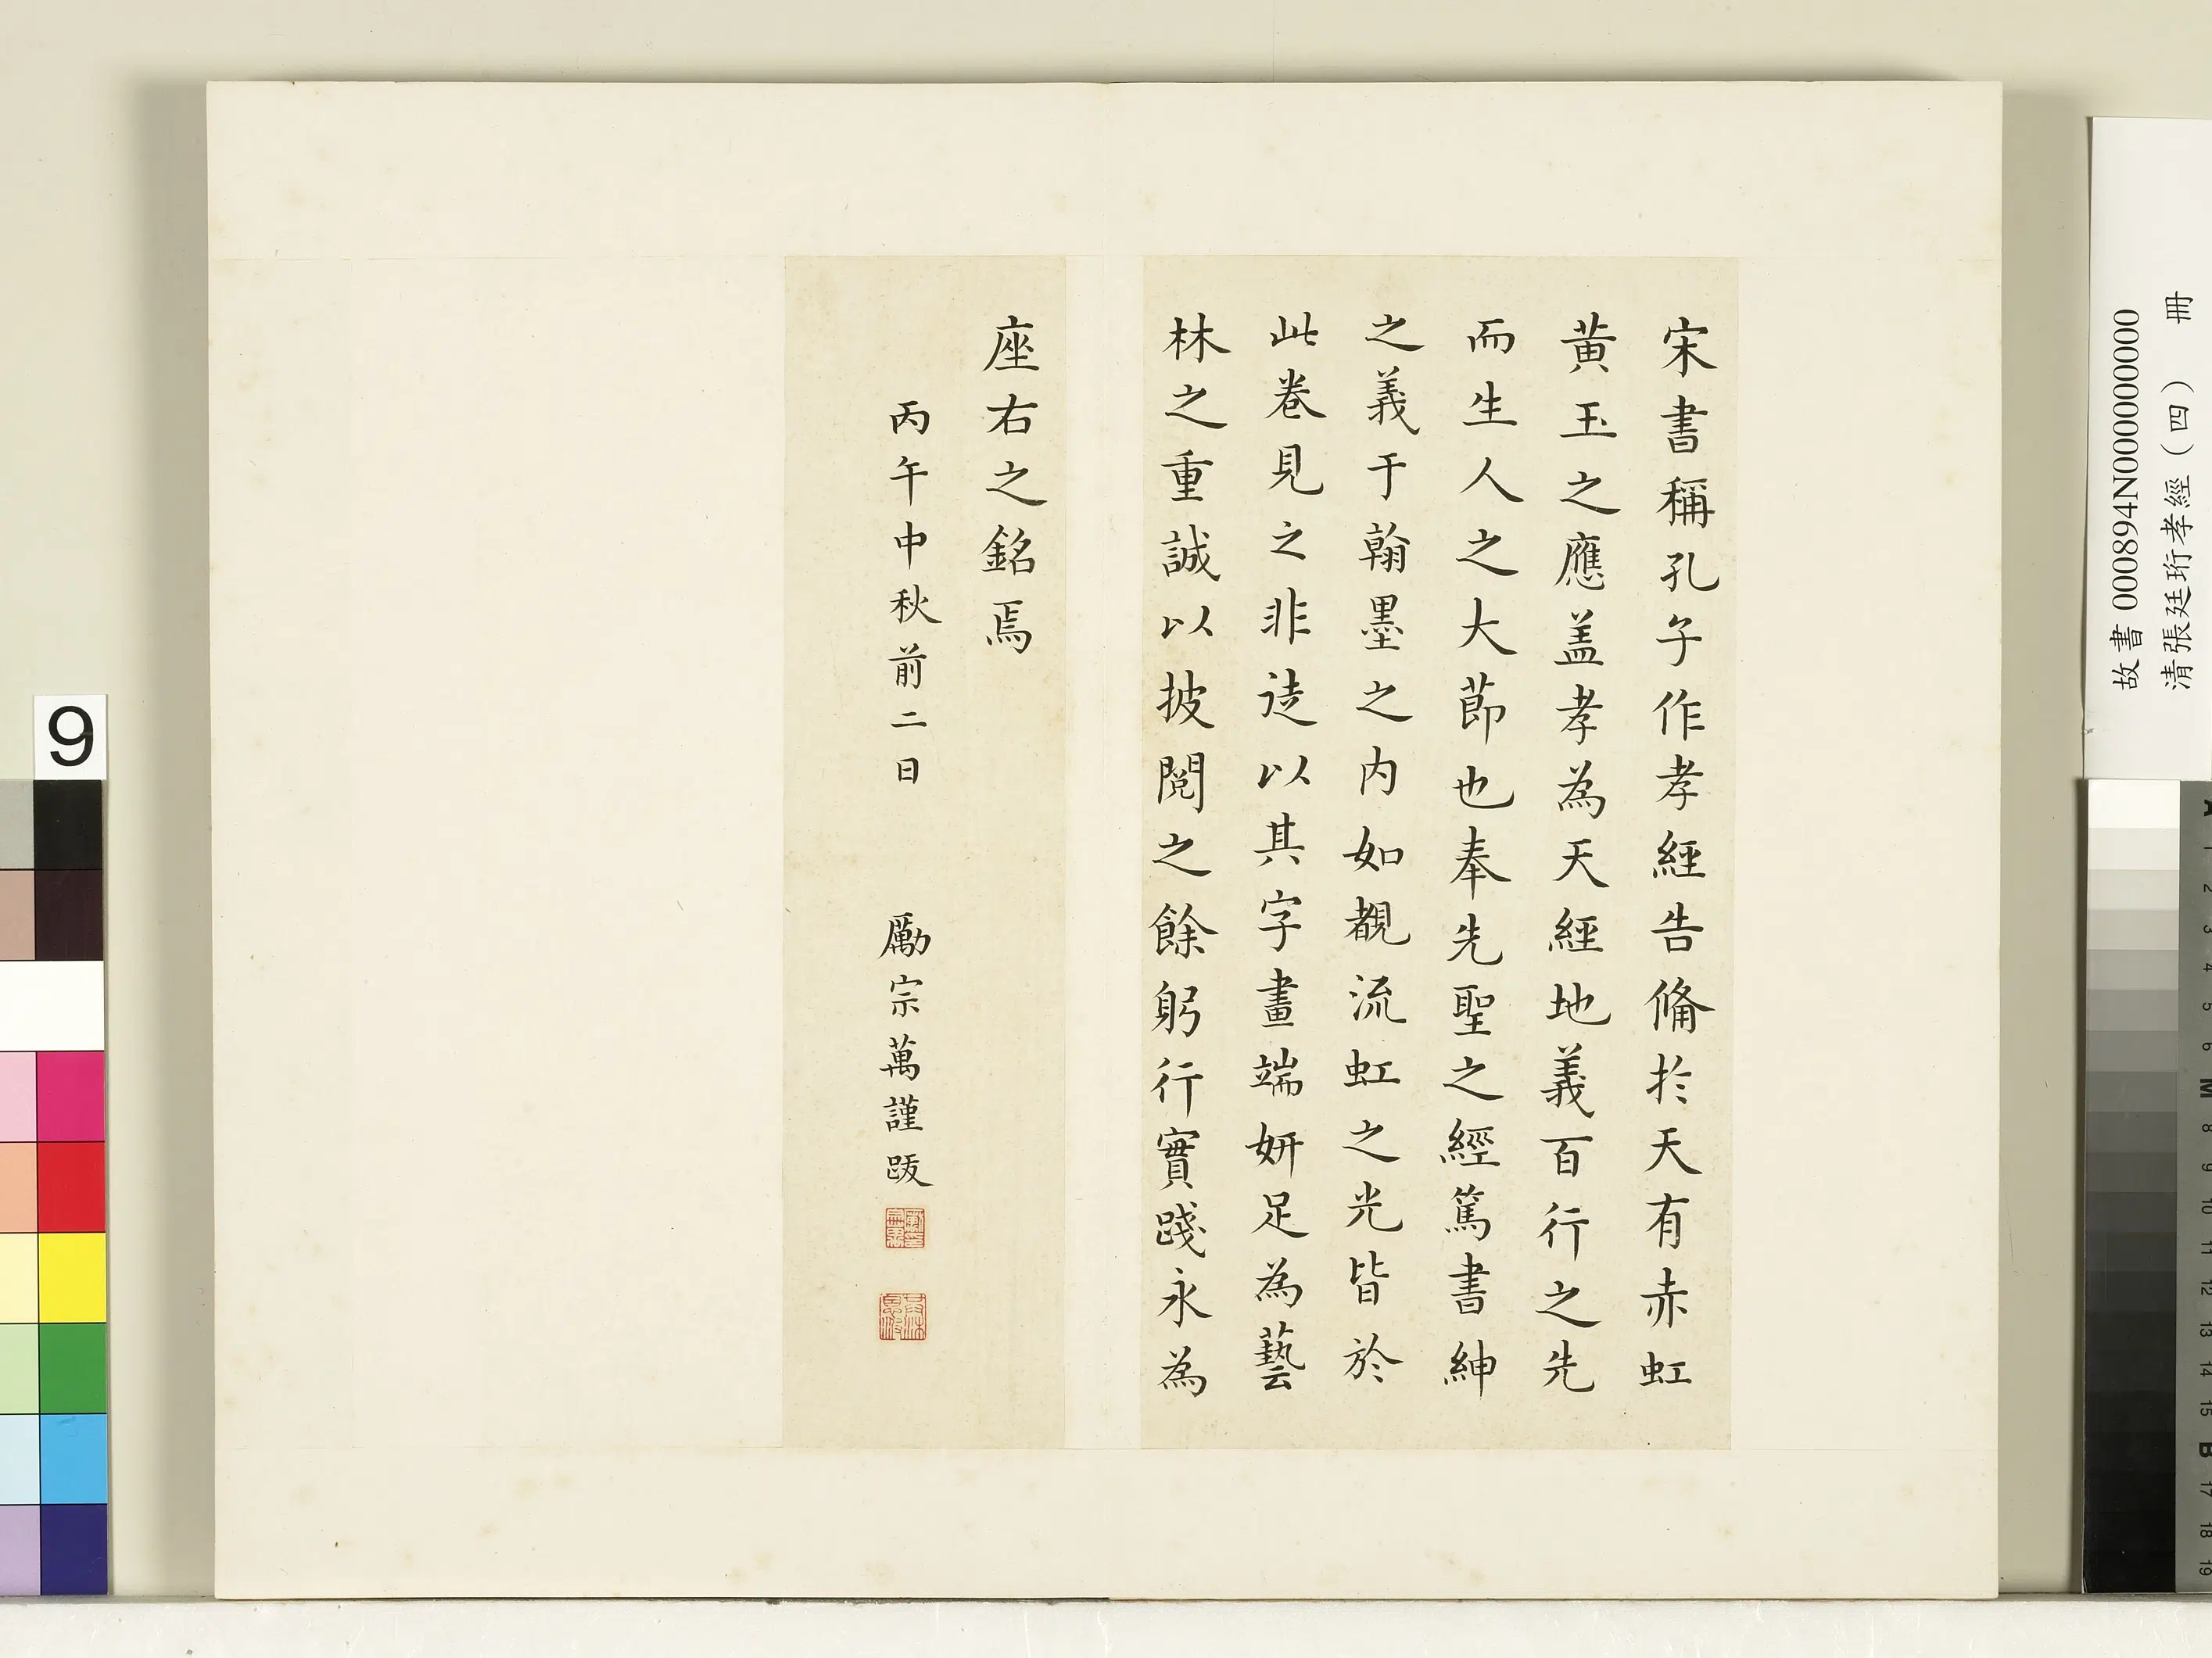 宋書稱孔子作孝經告俻於天有赤虹
黃玉之應盖孝為天經地義百行之先
而生人之大莭也奉先聖之經篤書紳
之義于翰墨之内如覩流虹之光皆於
此卷見之非徒以其字畫端妍足為藝
林之重誠以披閱之餘躬行實踐永為
座右之銘焉
丙午中秋前二日
勵宗萬謹跋
故書 000894N000000000
清張廷珩孝經（四） 冊
9
A 1 2 3 4 5 6 M 8 9 10 11 12 13 14 15 B 17 18 19